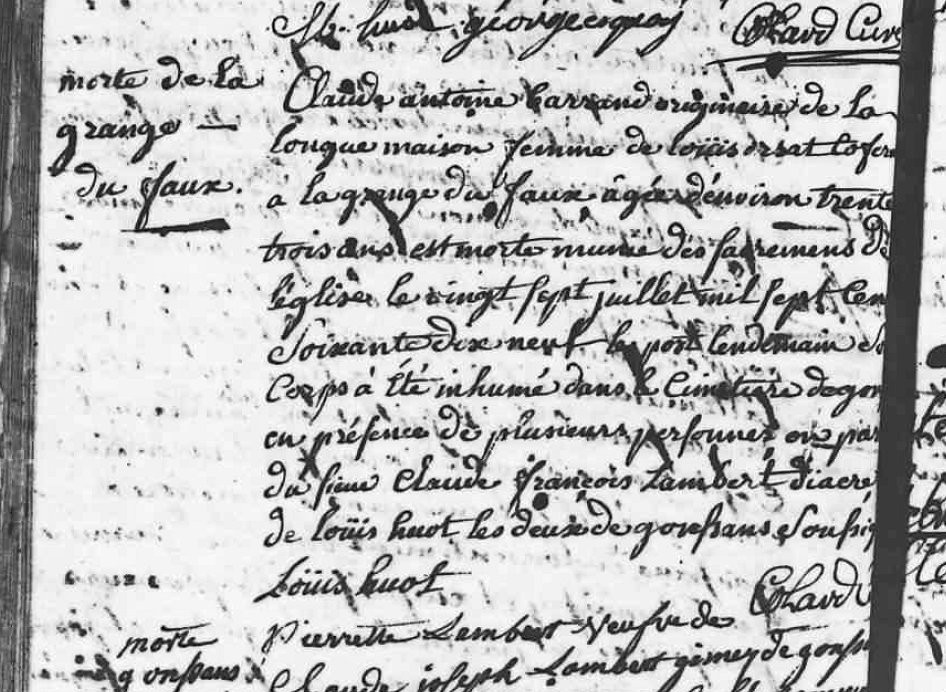 huot georgecoquoy Chard Cur
morte de la
grange —
du faux.
Claude antoine barrand origineire de la
longue maison femme de loüis orsat
a la grange du faux âgée d'environ trente
trois ans est morte munie des sacremens de
l'église le vingt sept juillet mil sept cen
Soixante dix neuf le post lendemain
Corps à été inhumé dans le Cimetiere de gon
en présence de plusieurs personnes en par
du sieur Claude françois Lambert diacre
de loüis huot les deux de gonssans Soussig
Loüis huot
Chard
morte
gonssans
Pierrette Lambert veufve de
Claude joseph Lambert de gonss